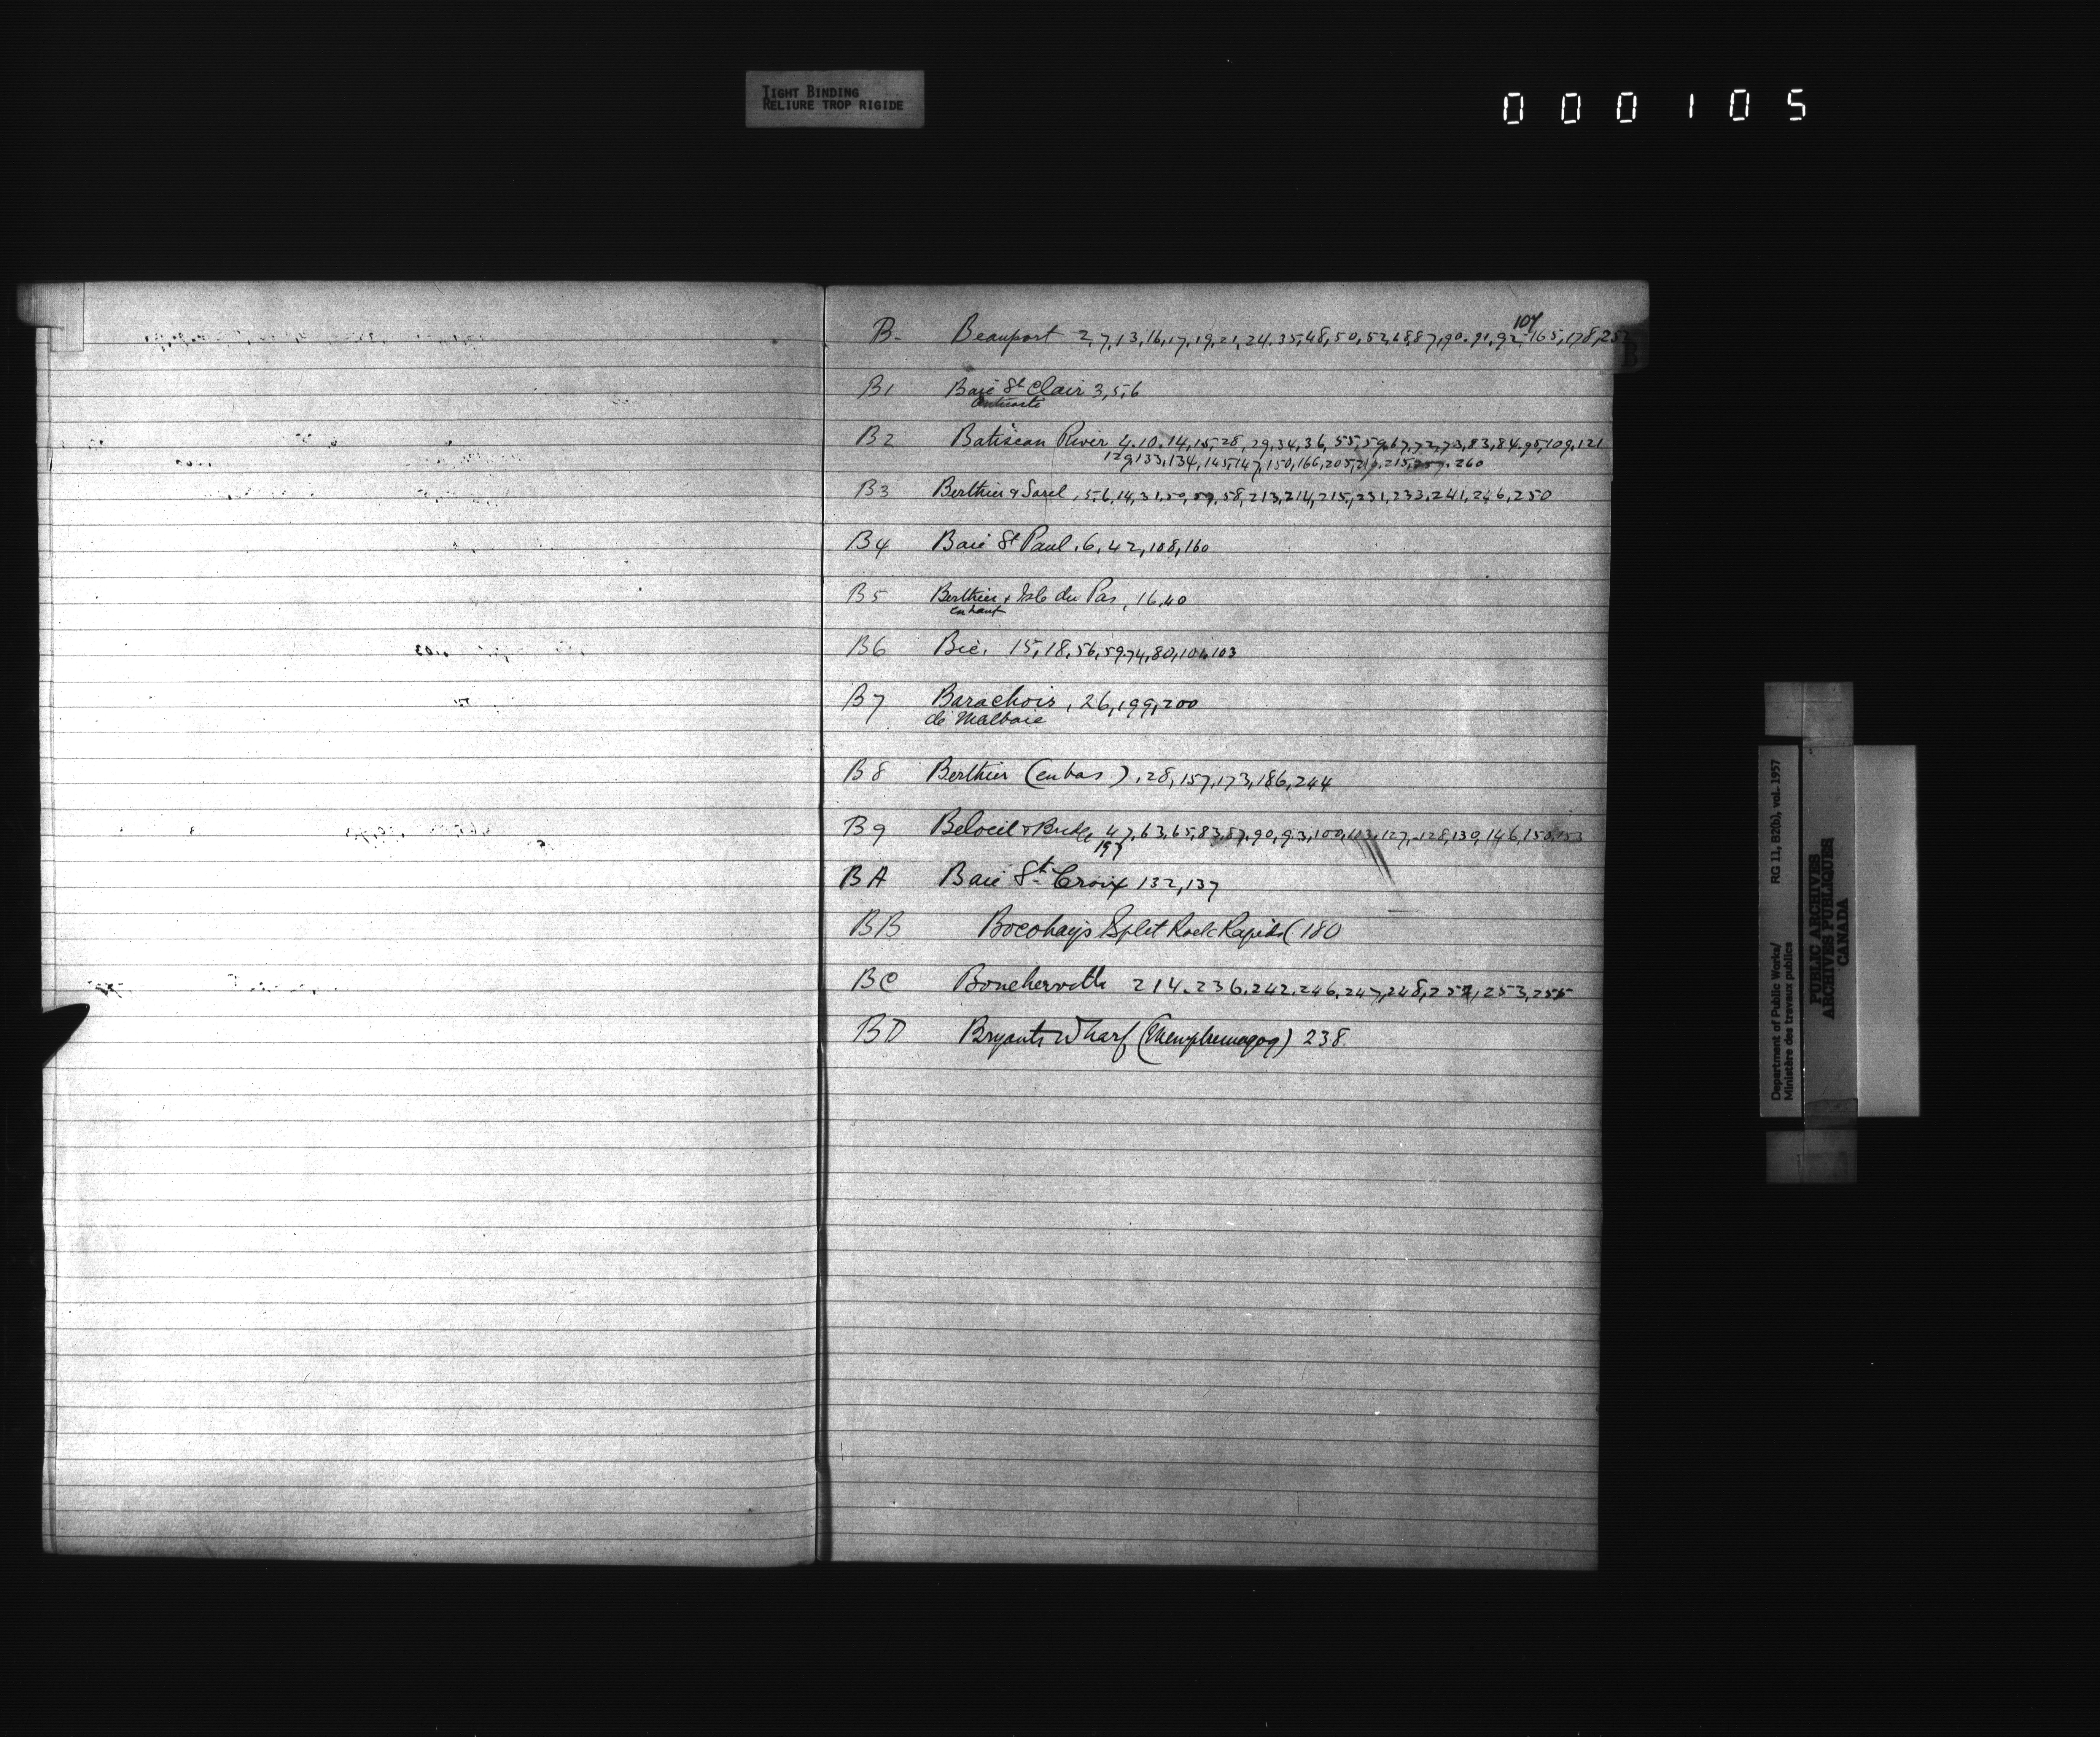 TIGHT BINDING
RELIURE TROP RIGIDE
000105
B- Beauport 2,7,13,16,17,19,21,24,35,48,50,52,68,87,90,91,92,107,165,178,252
B
B1 Baie St Clair 3,5,6
B2 Batiscan River 4.10.14,15,28,29,34,36,55,59,67,72,73,83,84,95,109,121
129,133,134,145,147,150,166,205, 215, 260
B3 Berthier & Sorel, 5,6,14,31,50, 58,213,214,215,231,233,241,246,250
B4 Baie St Paul, 6,42,108,160
B5 Berthier & Isle du Pas, 16,40
en haut
B6 Bic, 15,18,56,59,74,80,101,103
B7 Barachois, 26,199,200
de Malbaie
B8 Berthier (en bas), 28,157,173,186,244
B9 Beloeil & 47,63,65,83,87,90,93,100,113,127,128,139,146,150,153
197
BA Baie St Croix 132,137
BB Split Rock Rapids (180
BC Boucherville 214.236,242,246,247,248,252,253,255
BD Bryants Wharf (Memphremagog) 238.
Department of Public Works/
Ministère des travaux publics
RG 11, B2(b), vol. 1957
PUBLIC ARCHIVES
ARCHIVES PUBLIQUES
CANADA